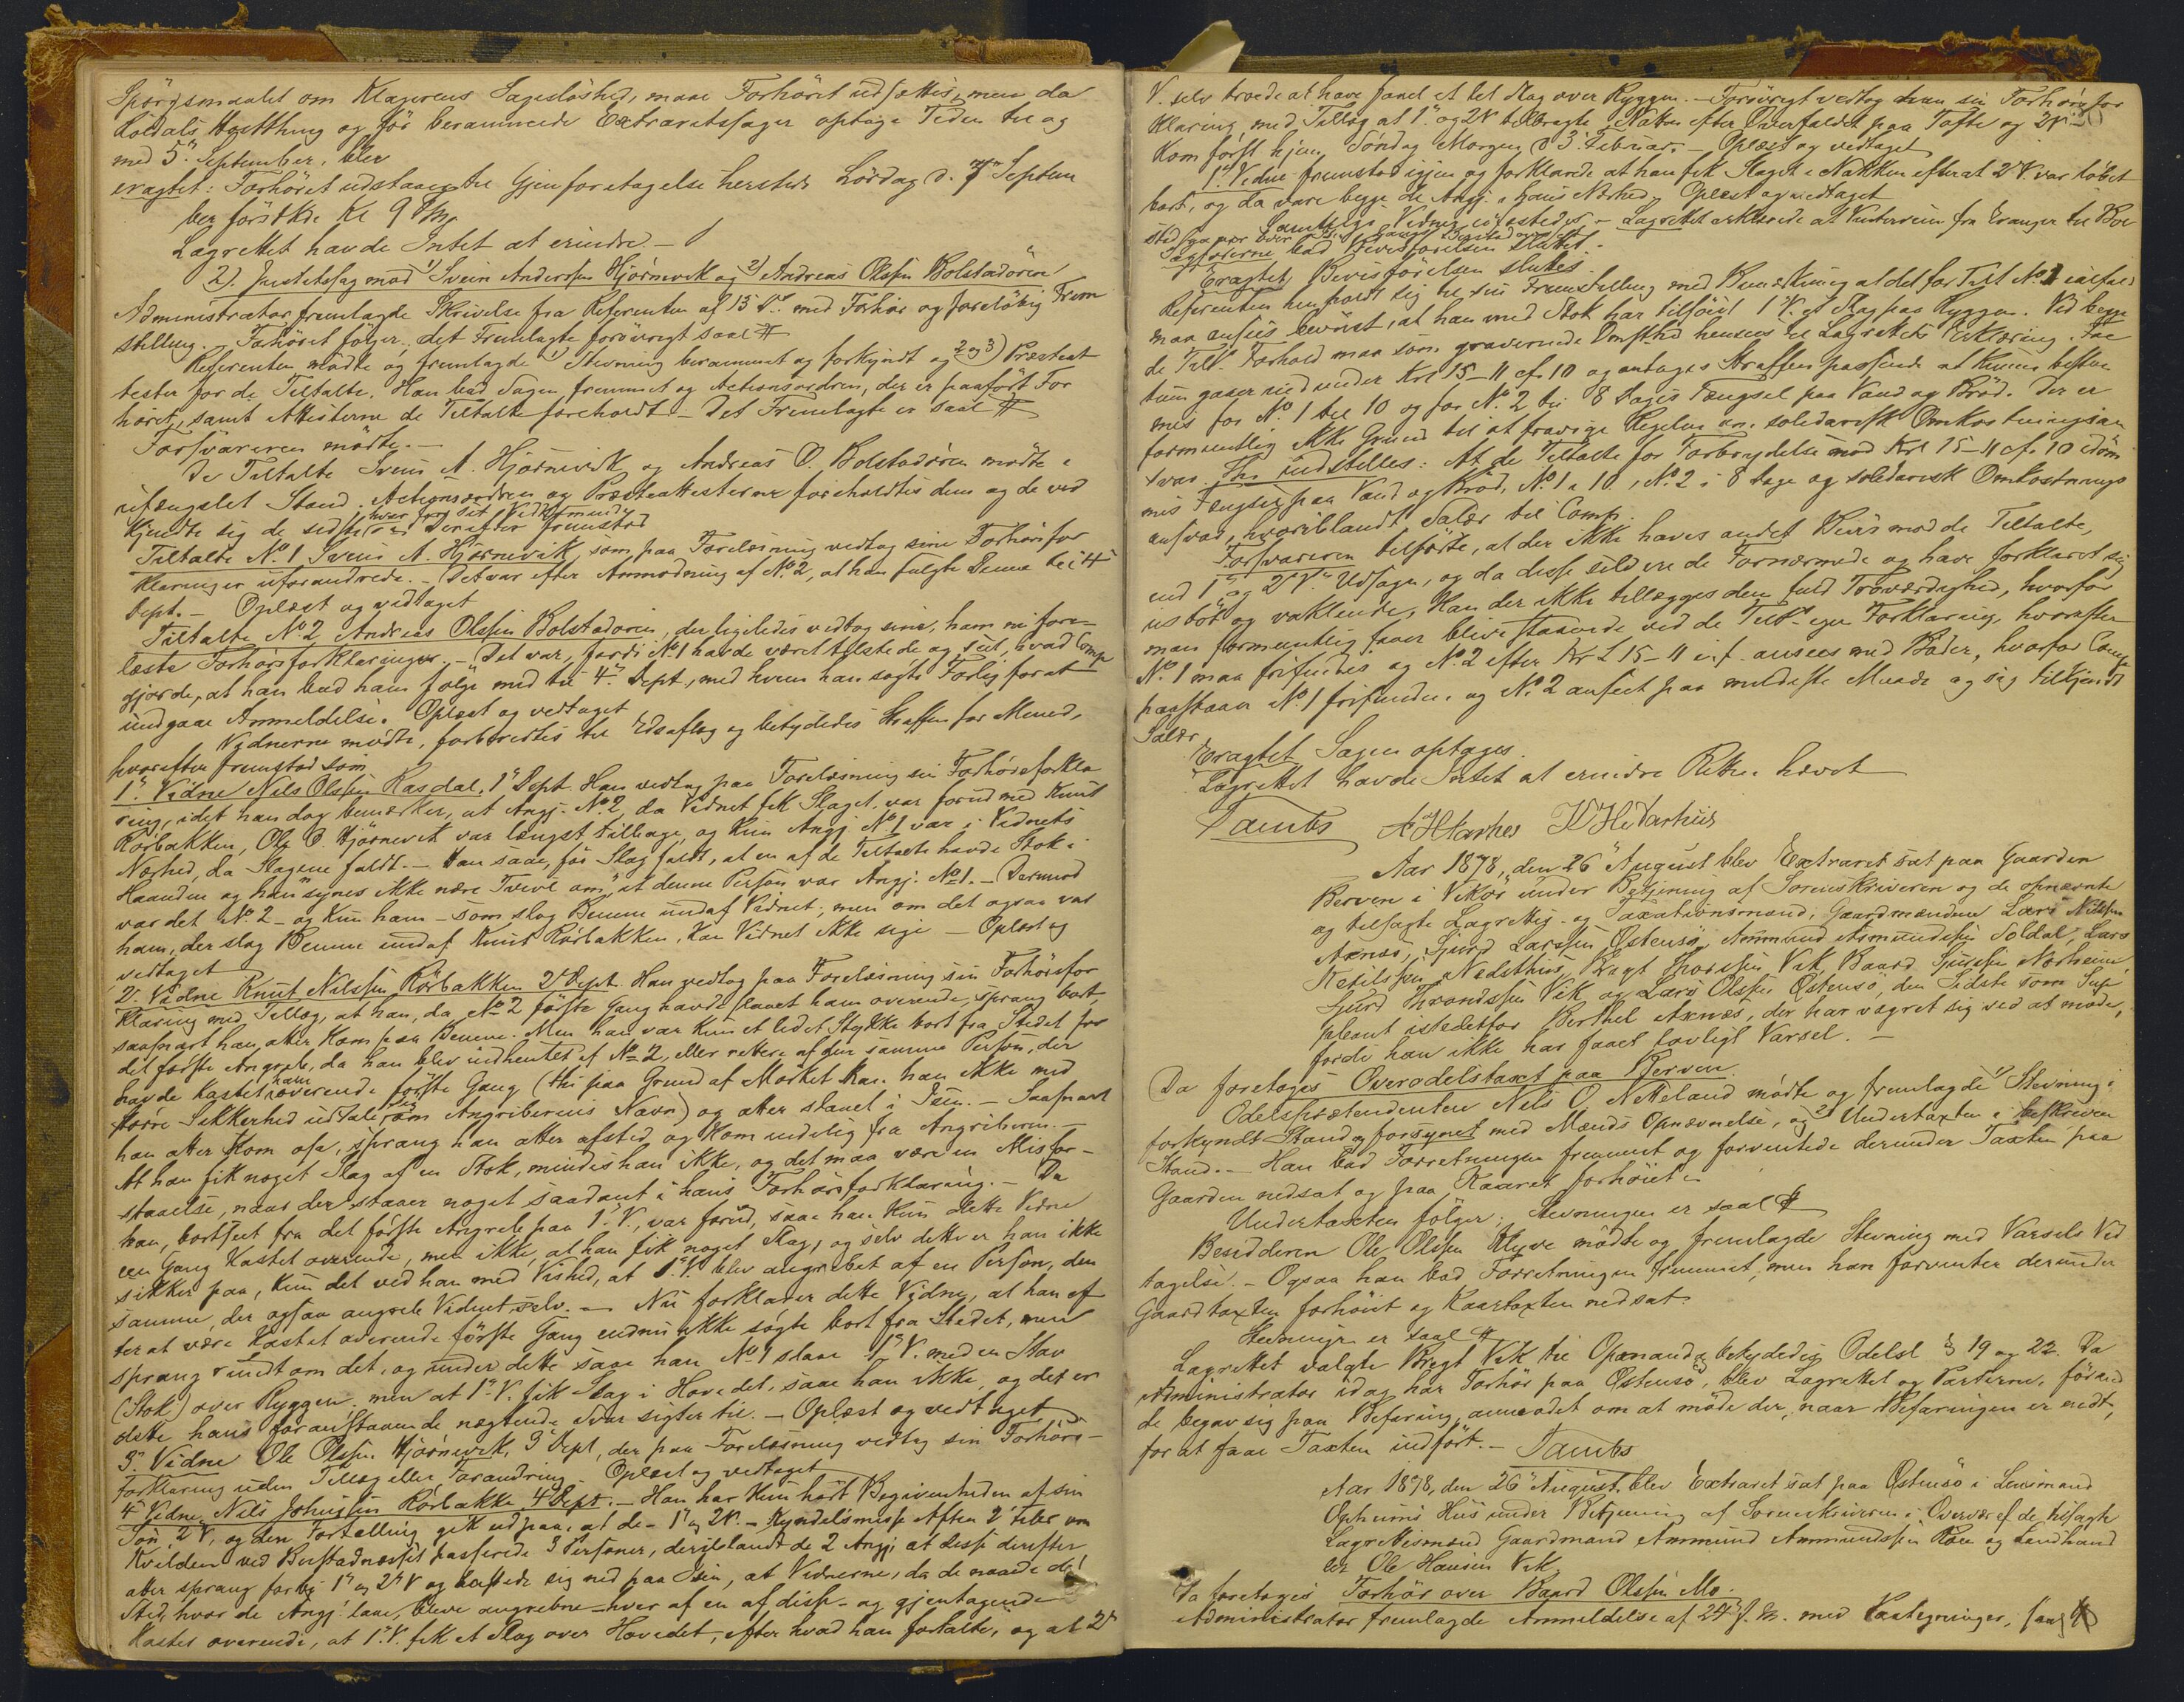 Spørgsmaalet om Klagerens Sagesløshed, maae Forhøret udsættes, men da
Røldals Høstthing og før berammede Extraretssager optage Tiden til og
med 5te September, blev
eragtet: Forhøret udstaaer til Gjenforetagelse hersteds Lørdag d. 7de Septem
ber förstk. Kl 9 Fm.
Lagrettet havde Intet at erindre. —
2). Justitssag mod 1) Svein Anderssen Hjørnevik og 2) Andreas Olssen Bolstadøren
Administrator fremlagde Skrivelse fra Referenten af 13 ds. med Forhør og foreløbig Frem
stilling. — Forhøret følger, det Fremlagte forøvrigt saal #
Referenten mødte og fremlagde 1) Stevning berammet og forkyndt og 2 og 3) Præsteat
tester for de Tiltalte. Han bad Sagen fremmet og Actionsordren, der er paaført For
høret, samt Attesterne de Tiltalte foreholdt — Det Fremlagte er saal #
Forsvareren mødte. —
De Tiltalte Svein A. Hjørnevik og Andreas O. Bolstadøren mødte i
ufængslet Stand. Actionsordren og Præsteattesterne foreholdtes dem og de ved
kjendte sig de sidste hver for sit Vedkommende. Derefter fremstod
Tiltalte No. 1 Svein A. Hjørnevik, som paa Forelæsning vedtog sine Forhørsfor
klaringer uforandrede. — Det var efter Anmodning af No. 2, at han fulgte Denne til 4
Dept. — Oplæst og vedtaget
Tiltalte No 2 Andreas Olssen Bolstadøren, der ligeledes vedtog sine, ham nu fore-
læste Forhørsforklaringer. — Det var, fordi No. 1 havde været tilstede og seet, hvad Comp
gjorde, at han bad ham følge med til 4de Dept, med hvem han søgte Forlig for at
undgaae Anmeldelse. Oplæst og vedtaget
Vidnerne mødte, forberedtes til Edsaflæg og betydedes Straffen for Mened,
hvorefter fremstod som
1ste Vidne Nils Olssen Rasdal, 1ste Dept. Han vedtog paa Forelæsning sin Forhørsforkla
ring, idet han dog bemærker, at Angj. No. 2, da Vidnet fik Slaget, var forud med Knut
Rørbakken, Ole O. Hjørnevik var længst tilbage, og kun Angj No 1 var i Vidnets
Nærhed, da Slagene faldt. — Han saae, før Slag faldt, at en af de Tiltalte havde Stok i
Haanden og han "synes ikke nære Tvivl om", at denne Person var Angj. No 1. — Derimod
var det No. 2 — og kun ham — som slog Benene undaf Vidnet; men om det ogsaa var
ham, der slog Benene undaf Knut Rørbakken, kan Vidnet ikke sige — Oplæst og
vedtaget
2det Vidne Knut Nilssen Rørbakken 2det Dept. Han vedtog paa Forelæsning sin Forhørsfor
klaring med Tillæg, at han, da No 2 første Gang havde slaaet ham overende, sprang bort,
saasnart han atter kom paa Benene. Men han var kun et lidet Stykke bort fra Stedet for
det første Angreb, da han blev indhentet af No 2, eller rettere af den samme Person, der
havde kastet ham overende første Gang (thi paa Grund af Mørket kan han ikke med
større Sikkerhed udtale sig om Angriberens Navn) og atter slaaet i Jern. — Saasnart
han atter kom ofa, sprang han atter afsted og kom endelig fra Angriberen. —
At han fik noget Slag af en Stok, mindes han ikke, og det maa være en Misfor-
staaelse, naar der staaer noget saadant i hans Forhørsforklaring. — Da
han, bortseet fra det første Angreb paa 1ste V., var forud, saae han kun dette Vidne
een Gang kastet overende, men ikke, at han fik noget Slag, og selv dette er han ikke
sikker paa, kun det ved han med Vished, at 1ste V. blev angrebet af en Person, den
samme, der ogsaa angreb Vidnet selv. — Nu forklarer dette Vidne, at han ef
ter at være kastet overende første Gang endnu ikke søgte bort fra Stedet, men
sprang rundt om det, og under dette saae han No 1 slaae 1ste V. med en Stav
(Stok) over Ryggen, men at 1ste V. fik Slag i Hovedet, saae han ikke, og det er
dette hans foranstaaende nægtende Svar sigter til. — Oplæst og vedtaget
3die Vidne Ole Olssen Hjørnevik, 3die Dept, der paa Forelæsning vedtog sin Forhørs-
forklaring uden Tillæg eller Forandring. Oplæst og vedtaget
4de Vidne Nils Johnssen Rørbakke 4de Dept. — Han har kun hørt Begivenheden af sin
Søn, 2 V., og den Fortælling gik ud paa, at de — 1ste og 2 V. — Kyndelsmesse Aften 2 Febr om
Kvelden ved Bustadnæsset passerede 3 Personer, deriblandt de 2 Angj; at disse derefter
atter sprang forbi 1ste og 2det V og kastede sig ned paa Isen, at Vidnerne, da de naaede det
Sted, hvor de Angj. laae, bleve angrebne — hver af en af disse — og gjentagende
kastet overende, at 1ste V. fik et Slag over Hovedet, efter hvad han fortalte, og at 2det
V. selv troede at have faaet et let Slag over Ryggen. — Forøvrigt vedtog han sin Forhørsfor
klaring, med Tillæg at 1ste og 2 V tilbragte Natten efter Overfaldet paa Tofte og 2 V
kom først hjem Søndag Morgen d 3 Februar. — Oplæst og vedtaget
1ste Vidne fremstod igjen og forklarede at han fik Slaget i Nakken efter at 2 V. var løbet
bort, og da vare begge de Angj. i hans Nærhed. Oplæst og vedtaget
Samtlige Vidner edfæstedes. — Lagrettet erklærede at Vinterveien fra Evanger til Bol
stad gaar over
Sagførerne bad Bevisførelsen sluttet.
Eragtet Bevisførelsen sluttes.
Referenten henholdt sig til sin Fremstilling med Bemærkning at det for Tilt No. 1 ialfald
maa ansees bevist, at han med Stok har tilføiet 1ste V. et Slag paa Ryggen. Ved begge
de Tilt. Forhold maa som graverende Omsthd hensees til Lagrettets Erklæring. Fac
tum gaaer ind under Krl 15–11 cfr 10 og antages Straffen passende at kunne bestem
mes for No. 1 til 10 og for No. 2 til 8 Dages Fængsel paa Vand og Brød. Der er
formentlig ikke Grund til at fravige Regelen om solidarisk Omkostningsan
svar. Thi indstilles: At de Tiltalte for Forbrydelse mod Krl 15–11 cfr 10 idøm
mes Fængsel paa Vand og Brød, No. 1 i 10, No. 2 i 8 Dage og solidarisk Omkostnings
ansvar, hvoriblandt Salær til Comp.
Forsvareren tilførte, at der ikke haves andet Bevis mod de Tiltalte,
end 1ste og 2det Vs Udsagn, og da disse selv ere de Fornærmede og have forklaret sig
ustøt og vaklende, kan der ikke tillægges dem fuld Troværdighed, hvorfor
man formentlig faaer blive staaende ved de Tilts egen Forklaring, hvorefter
No. 1 maa frifindes og No. 2 efter Krl 15–11 i.f. ansees med Bøder, hvorfor Comp
paastaaer No 1 frifunden og No. 2 anseet paa mildeste Maade og sig tilkjendt
Salær
Eragtet Sagen optages.
Lagrettet havde Intet at erindre Retten hævet
Tambs
Aar 1878, den 26 August blev Extraret sat paa Gaarden
Berven i Vikør under Betjening af Sorenskriveren og de opnævnte
og tilsagte Lagrettes- og Taxationsmænd, Gaardmændene Lars Nilssen
Axnæs, Sjurd Larssen Østensø, Ammund Asmundssen Soldal, Lars
Ketilssen Nedsthus, Brygt Thorssen Vik, Baard Sjurssen Norheim
Sjurd Throndssen Vik og Lars Olssen Østensø, den Sidste som Sup
pleant istedetfor Berthel Axnæs, der har vægret sig ved at møde,
fordi han ikke har faaet lovligt Varsel. —
Da foretoges Overodelstaxt paa Berven.
Odelsprætendenten Nils O. Netteland mødte og fremlagde 1) Stevning i
forkyndt Stand og forsynet med Mænds Opnævnelse, og 2) Undertaxten i beskreven
Stand. — Han bad Forretningen fremmet og forventede derunder Taxten paa
Gaarden nedsat og paa Kaaret forhøiet.
Undertaxten følger; Stevningen er saal #
Besidderen Ole Olssen Klyve mødte og fremlagde Stevning med Varsels Ved
tagelse. — Ogsaa han bad Forretningen fremmet, men han forventer derunder
Gaardtaxten forhøiet og Kaartaxten nedsat.
Stevningen er saal #
Lagrettet valgte Brygt Vik til Opmand og betydedes Odelsl § 19 og 22. Da
Administrator idag har Forhør paa Østensø, blev Lagrettet og Parterne, førend
de begav sig paa Befaring, anmodet om at møde der, naar Befaringen er endt,
for at faae Taxten indført. — Tambs
Aar 1878, den 26 August, blev Extraret sat paa Østensø i Lensmand
Opheims Hus under Betjening af Sorenskriveren i Overvær af de tilsagte
Lagrettesmænd Gaardmand Ammund Ammundssen Røse og Landhand
ler Ole Hansen Vik
Da foretoges Forhør over Baard Olssen Mo.
Administrator fremlagde Anmeldelse af 24 f. M. med Paategninger, saal #